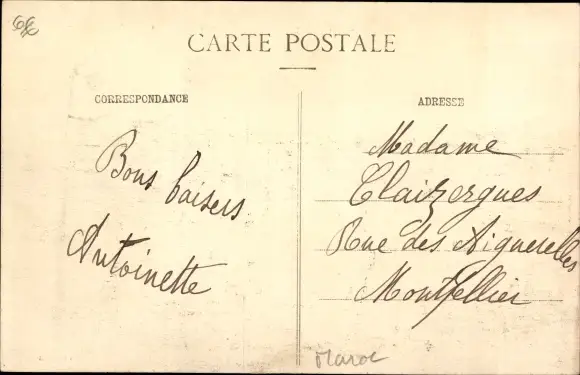 6€
CARTE POSTALE
CORRESPONDANCE
ADRESSE
Bons baisers
Antoinette
Madame
Clauzergues
Rue des Aiguerelles
Montpellier
Maroc